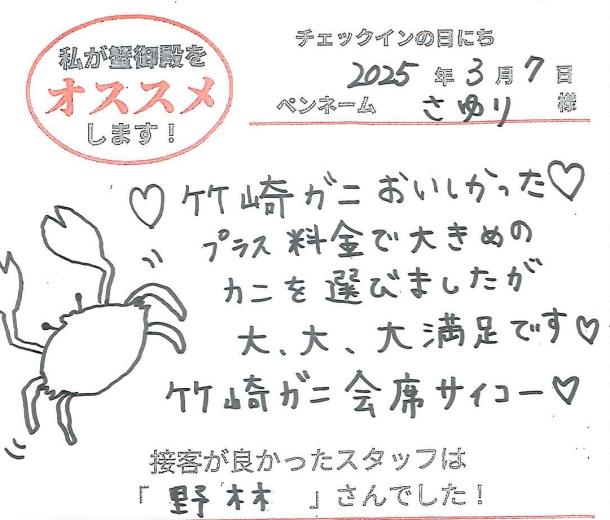 私が蟹御殿を
オススメ
します！
チェックインの日にち
2025 年 3 月 7 日
ペンネーム さゆり 様
♡ 竹崎ガニおいしかった♡
プラス料金で大きめの
カニを選びましたが
大、大、大満足です♡
竹崎ガニ会席サイコー♡
接客が良かったスタッフは
「 野林 」さんでした！